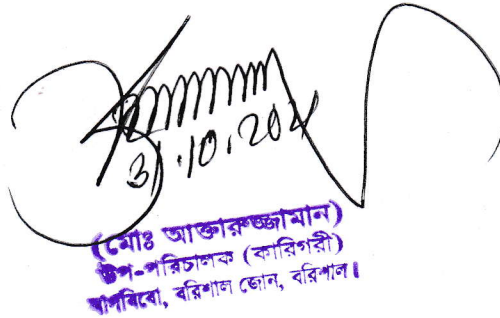 31.10.202
(মোঃ আক্তারুজ্জামান)
উপ-পরিচালক (কারিগরী)
বাপবিবো, বরিশাল জোন, বরিশাল।